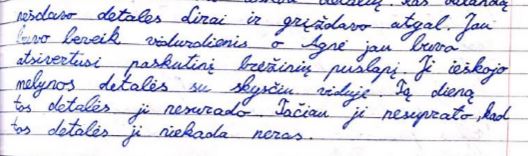 nešdavo detales Lirai ir gręždavo atgal. Jau
buvo beveik vidurdienis o Agnė jau buvo
atsivertusi paskutinį brėžinių puslapį. Ji ieškojo
mėlynos detalės su skysčiu viduje. Tą dieną
tos detalės ji nesurado. Tačiau ji nesuprato, kad
tos detalės ji niekada neras.